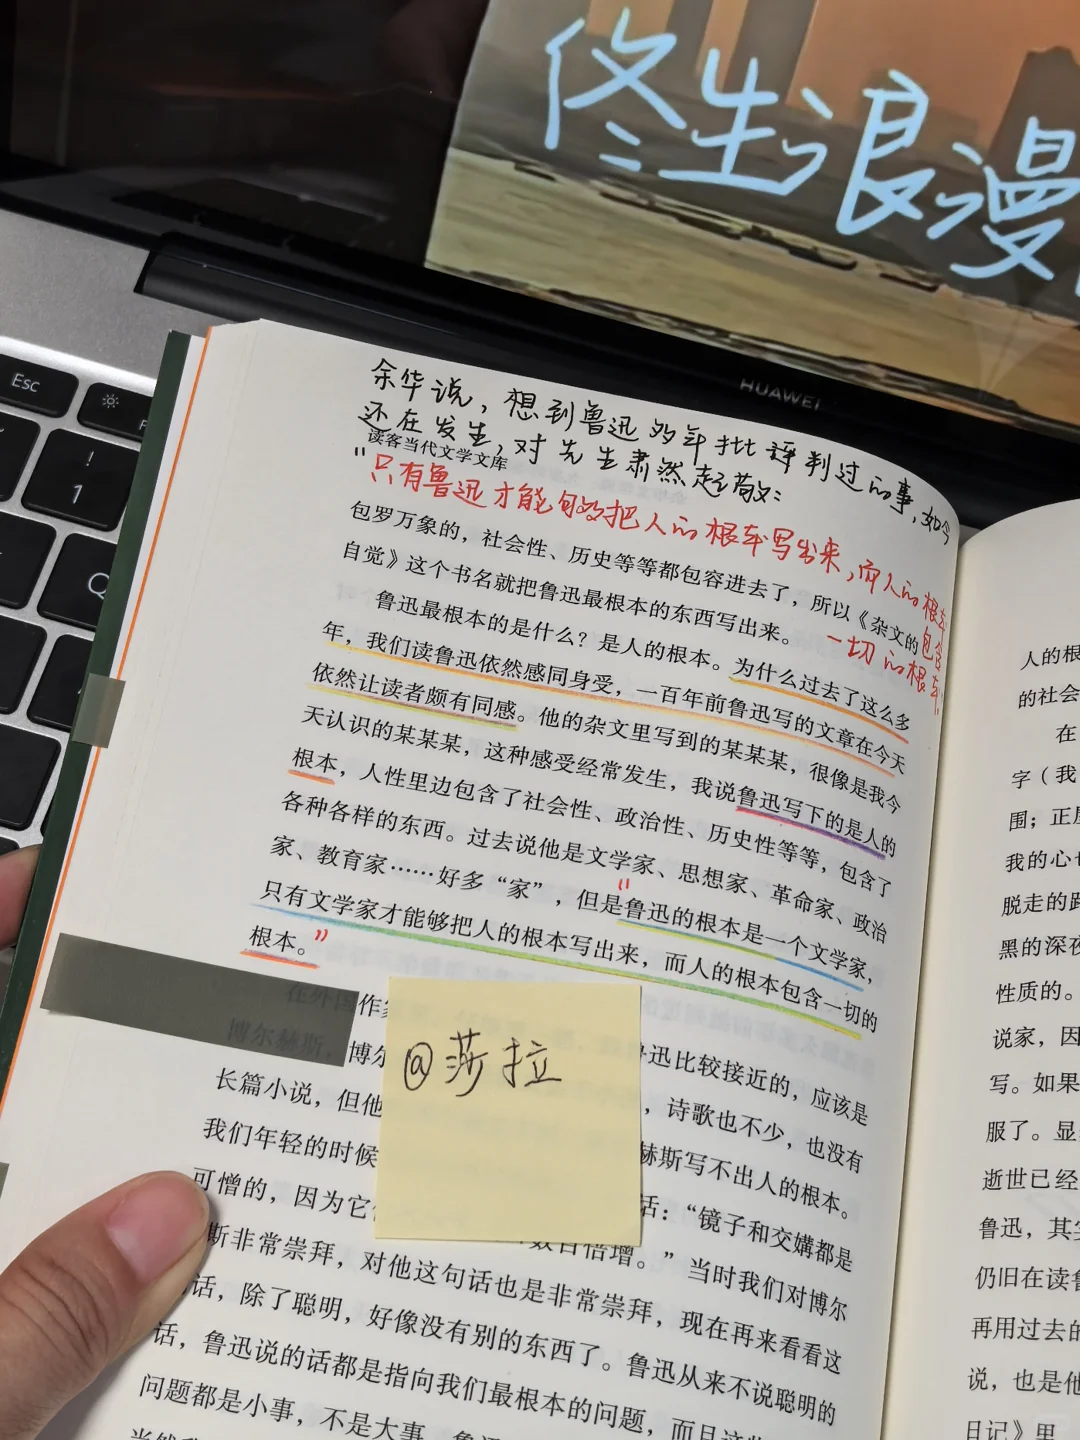 佟生浪漫
HUAWEI
Esc
!
1
Q
余华说，想到鲁迅当年批评判过的事，如今
还在发生，对先生肃然起敬：
读客当代文学文库
“只有鲁迅才能够把人的根本写出来，而人的根本
包含
一切的根本”
包罗万象的，社会性、历史等等都包容进去了，所以《杂文的
自觉》这个书名就把鲁迅最根本的东西写出来。
鲁迅最根本的是什么？是人的根本。为什么过去了这么多
年，我们读鲁迅依然感同身受，一百年前鲁迅写的文章在今天
依然让读者颇有同感。他的杂文里写到的某某某，很像是我今
天认识的某某某，这种感受经常发生，我说鲁迅写下的是人的
根本，人性里边包含了社会性、政治性、历史性等等，包含了
各种各样的东西。过去说他是文学家、思想家、革命家、政治
家、教育家……好多“家”，但是“鲁迅的根本是一个文学家，
只有文学家才能够把人的根本写出来，而人的根本包含一切的
根本。”
在外国作家
博尔赫斯，博尔 鲁迅比较接近的，应该是
长篇小说，但他 ，诗歌也不少，也没有
我们年轻的时候 赫斯写不出人的根本。
可憎的，因为它 话：“镜子和交媾都是
数目倍增。”当时我们对博尔
斯非常崇拜，对他这句话也是非常崇拜，现在再来看看这
话，除了聪明，好像没有别的东西了。鲁迅从来不说聪明的
话，鲁迅说的话都是指向我们最根本的问题，而且这些
问题都是小事，不是大事
@莎拉
人的根
的社会
在
字（我
围；正
我的心
脱走的路
黑的深夜
性质的。
说家，因
写。如果
服了。显
逝世已经
鲁迅，其实
仍旧在读鲁
再用过去的
说，也是他
日记》里